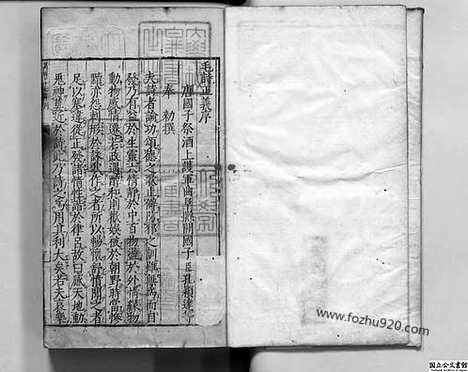 毛詩正義序
唐國子祭酒上護軍曲阜縣開國子臣孔穎達等
奉 勑撰
夫詩者論功頌德之歌止僻防邪之訓雖無為而自
發乃有益於生靈六情靜於中百物盪於外情緣物
動物感情遷若政遇醇和則歡娛被於朝野時當慘
黷亦怨刺形於詠歌作之者所以暢懷舒憤聞之者
足以塞違從正發諸情性諧於律呂故曰感天地動
鬼神莫近於詩此乃詩之為用其利大矣若夫哀樂
www.fozhu920.com
国立公文書館